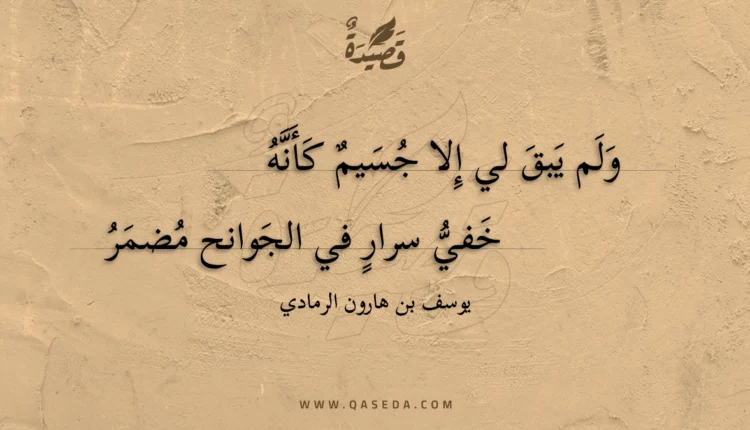 قَصِيْدَةٌ
وَلَم يَبقَ لي إِلا جُسَيمٌ كَأَنَّهُ
خَفيُّ سرارٍ في الجَوانح مُضمَرُ
يوسف بن هارون الرمادي
WWW.QASEDA.COM